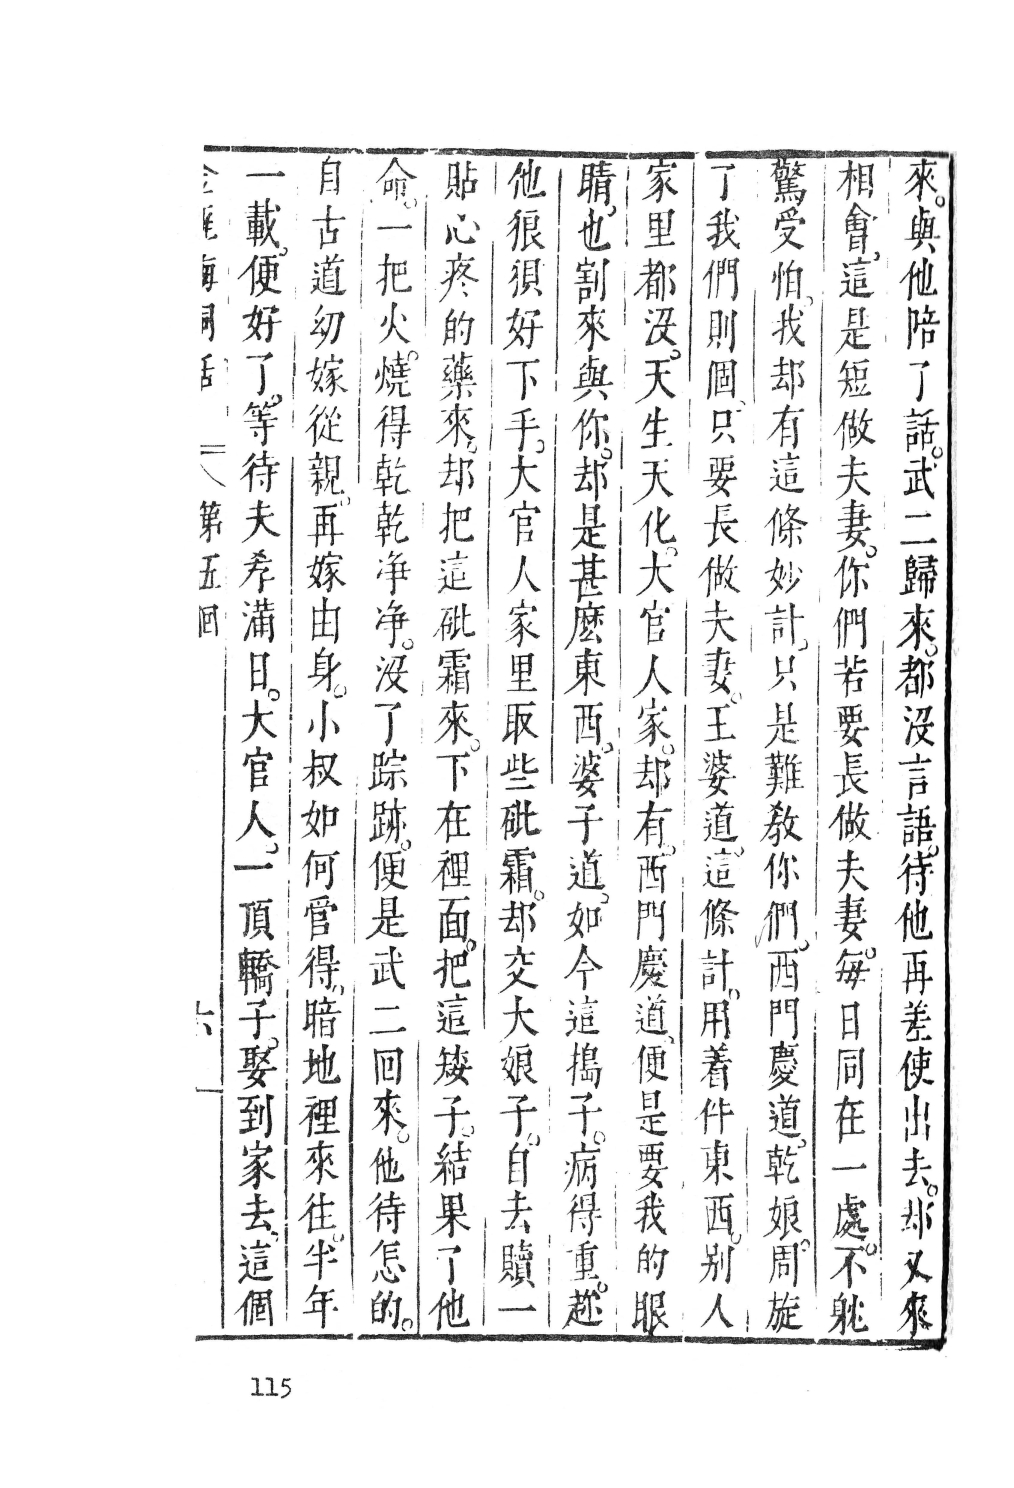 來。與他陪了話。武二歸來。都没言語。待他再差使出去。却又來
相會。這是短做夫妻。你們若要長做夫妻。每日同在一處。不躭
驚受怕。我却有這條妙計。只是難敎你們。西門慶道。乾娘。周旋
了我們則個。只要長做夫妻。王婆道。這條計。用着件東西。别人
家里都没。天生天化。大官人家。却有。西門慶道。便是要我的眼
睛。也割來與你。却是甚麽東西。婆子道。如今這搗子。病得重。趂
他狠狽好下手。大官人家里取些砒霜。却交大娘子。自去贖一
貼心疼的藥來。却把這砒霜來。下在裡面。把這矮子。結果了他
命。一把火。燒得乾乾净净。没了踪跡。便是武二回來。他待怎的。
自古道幼嫁從親。再嫁由身。小叔如何管得。暗地裡來往。半年
一載。便好了。等待夫孝滿日。大官人。一頂轎子。娶到家去。這個
金瓶梅詞話 第五回 六
115